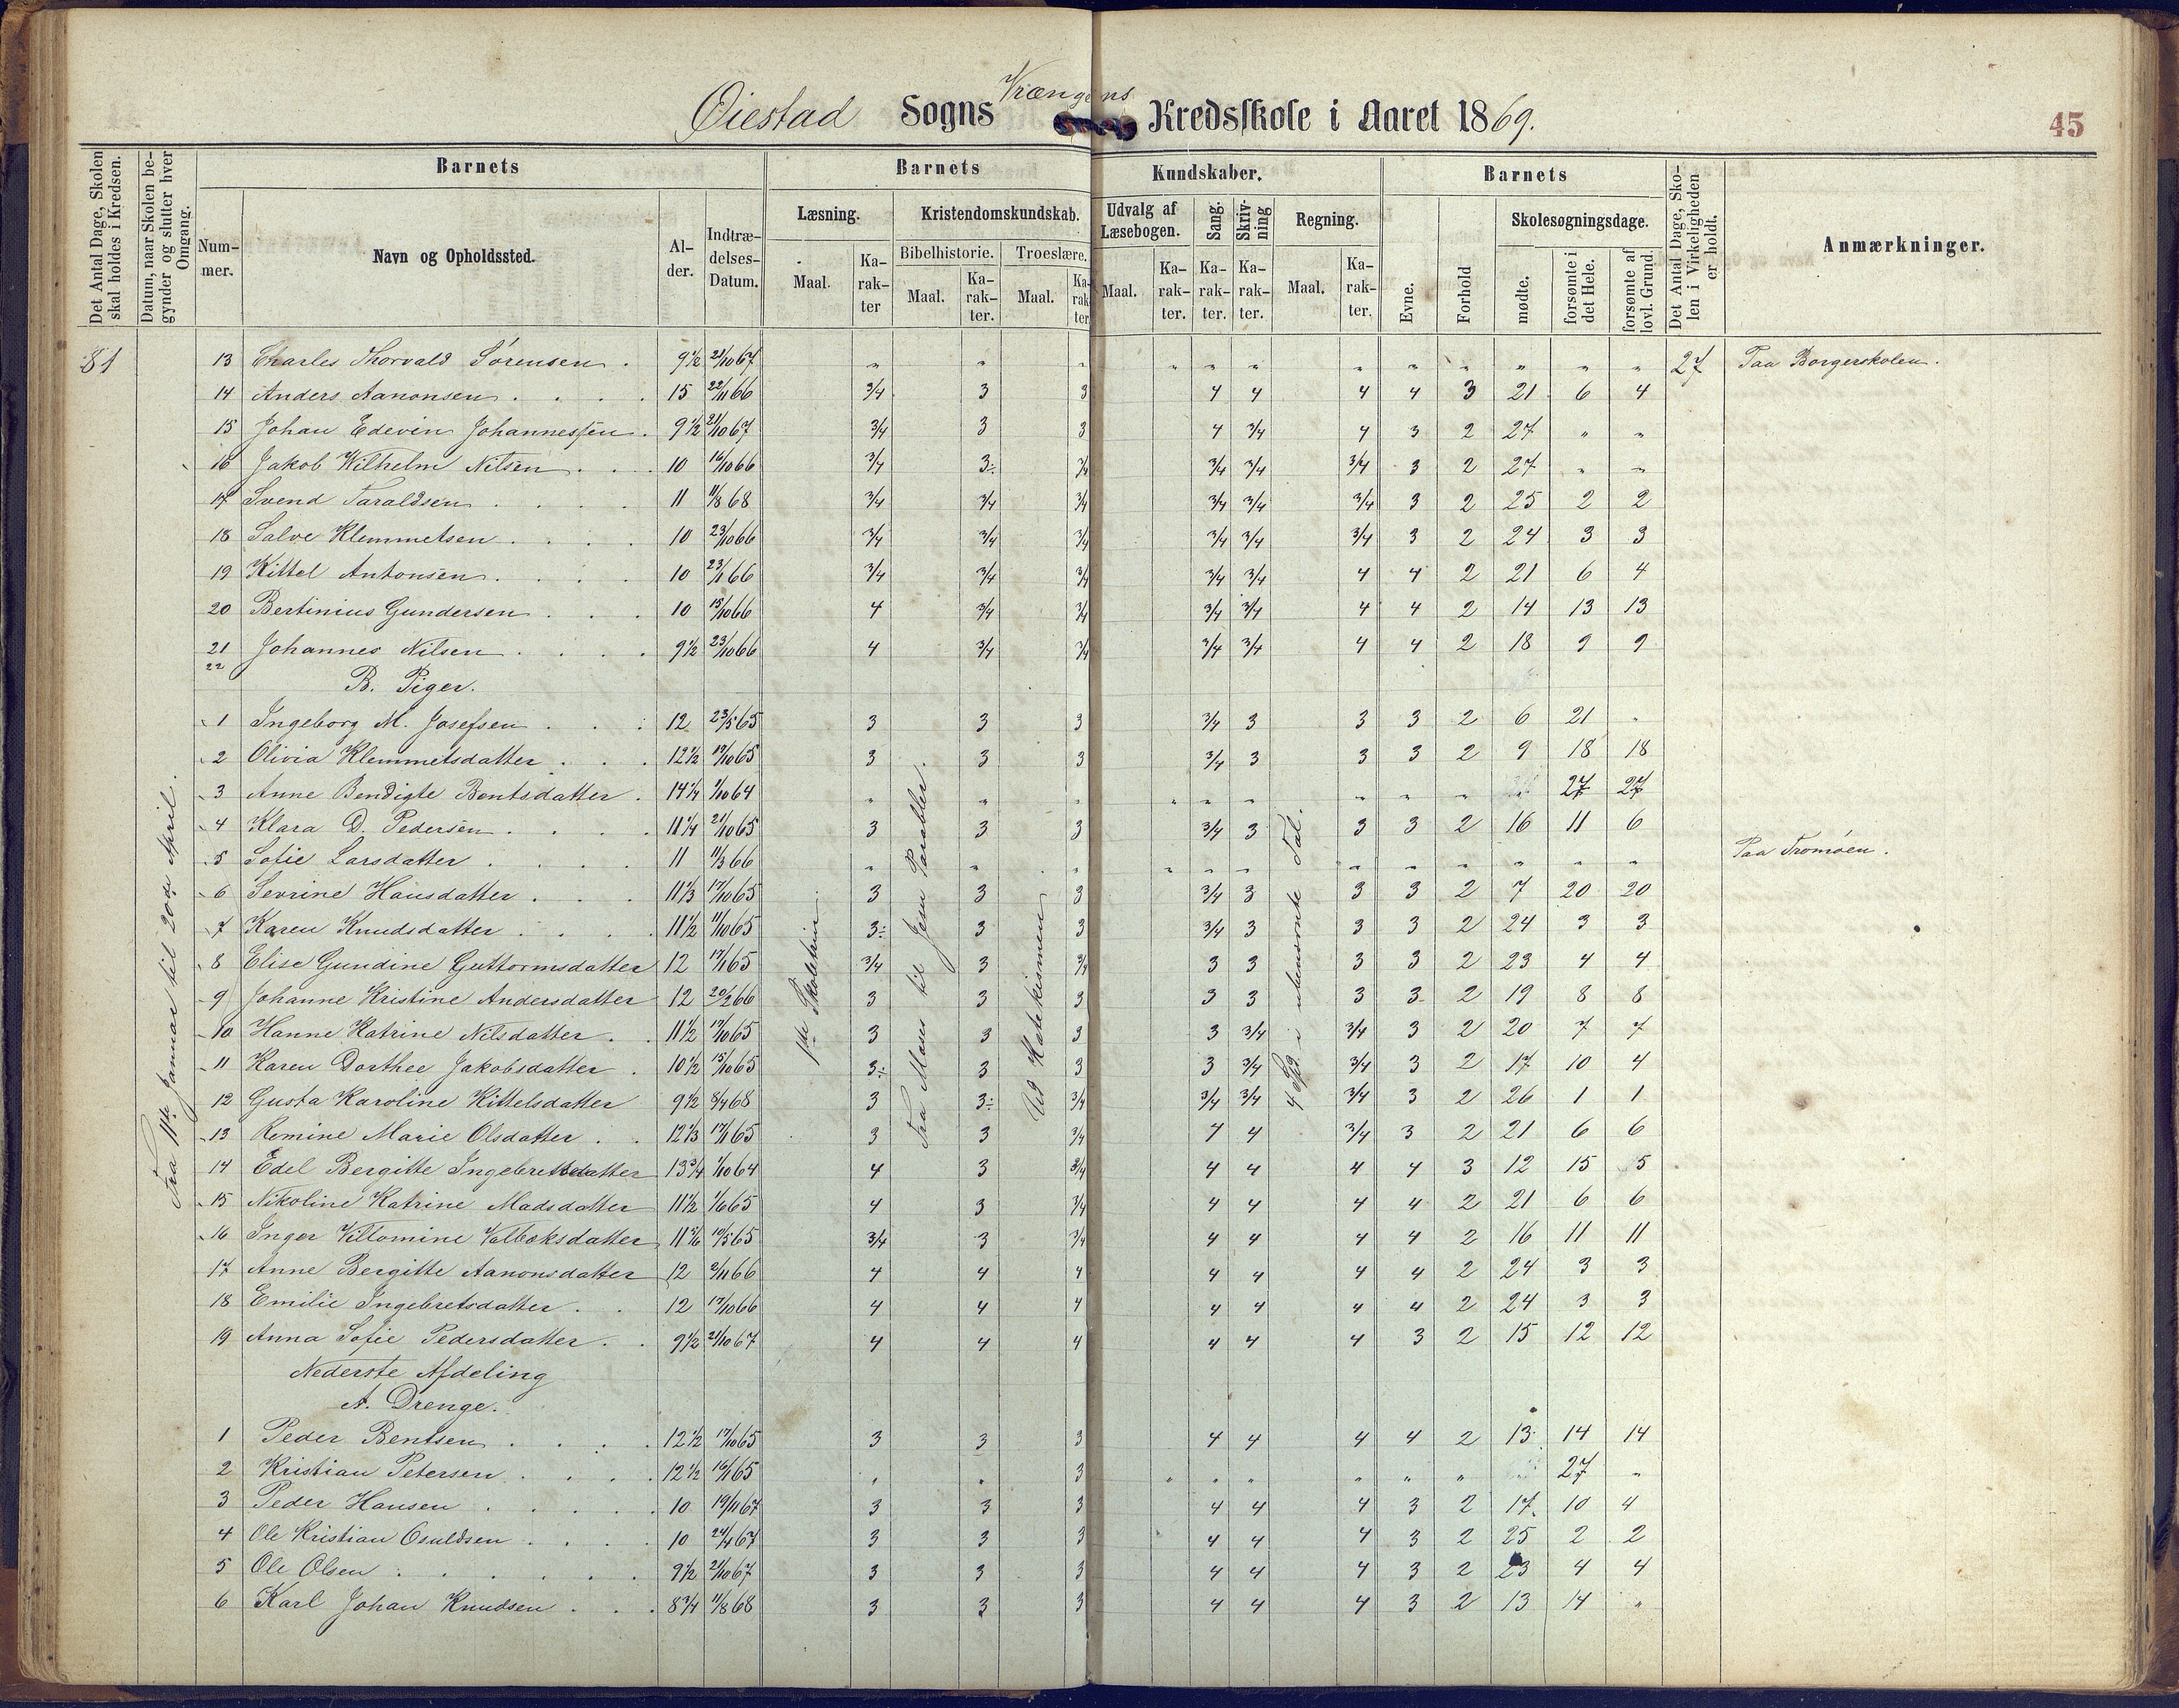 Vrængens
Øiestad Sogns Kredsskole i Aaret 1869.
45
Det Antal Dage, Skolen skal holdes i Kredsen.
Datum, naar Skolen begynder og slutter hver Omgang.
Barnets
Barnets Kundskaber.
Barnets
Det Antal Dage, Skolen i Virkeligheden er holdt.
Anmærkninger.
Nummer.
Navn og Opholdssted.
Alder.
Indtrædelses-Datum.
Læsning.
Kristendomskundskab.
Udvalg af Læsebogen.
Sang.
Skrivning
Regning.
Evne.
Forhold
Skolesøgningsdage.
Bibelhistorie.
Troeslære.
Maal. Karakter
Maal. Karakter.
Maal. Karakter.
Maal. Karakter.
Karakter.
Karakter.
Maal. Karakter.
mødte.
forsømte i det Hele.
forsømte af lovl. Grund.
81
Fra 11te Januar til 20de April.
1ste Skoletrin
Fra Moses til Jesu Parabler.
Ud Katekismen
4 Spc. i ubenævnte Tal.
13 Charles Thorvald Sørensen . 9 1/2 21/10 67 " " " " " " " " " " " " 27 Paa Borgerskolen.
14 Anders Aanonsen . 15 22/11 66 3/4 3 3 4 4 4 4 3 21 6 4
15 Johan Edevin Johannessen . 9 1/2 21/10 67 3/4 3 3 4 3/4 4 3 2 27 " "
16 Jakob Wilhelm Nilsen . 10 16/10 66 3/4 3÷ 3/4 3/4 3/4 3/4 3 2 27 " "
17 Svend Taraldsen . 11 11/8 68 3/4 3/4 3/4 3/4 3/4 3/4 3 2 25 2 2
18 Salve Klemmetsen . 10 23/10 66 3/4 3/4 3/4 3/4 3/4 3/4 3 2 24 3 3
19 Kittel Antonsen . 10 23/1 66 3/4 3/4 3/4 3/4 3/4 4 4 2 21 6 4
20 Bertinius Gundersen . 10 15/10 66 4 3/4 3/4 3/4 3/4 4 4 2 14 13 13
21 Johannes Nilsen . 9 1/2 23/10 66 4 3/4 3/4 3/4 3/4 4 4 2 18 9 9
22
B. Piger.
1 Ingeborg M. Josefsen . 12 23/5 65 3 3 3 3/4 3 3 3 2 6 21 "
2 Olivia Klemmetsdatter . 12 1/2 19/10 65 3 3 3 3/4 3 3 3 2 9 18 18
3 Anne Bendigte Bentsdatter . 14 1/4 1/10 64 " " " " " " " " " 27 27
4 Klara D. Pedersen . 11 1/4 21/10 65 3 3 3 3/4 3 3 3 2 16 11 6
5 Sofie Larsdatter . 11 11/3 66 " " " " " " " " " " " " Paa Tromøen.
6 Sevrine Hansdatter . 11 1/3 17/10 65 3 3 3 3/4 3 3 3 2 7 20 20
7 Karen Knudsdatter . 11 1/2 11/10 65 3÷ 3 3 3/4 3 3 3 2 24 3 3
8 Elise Gundine Guttormsdatter 12 17/1 65 3/4 3 3/4 3 3 3 3 2 23 4 4
9 Johanne Kristine Andersdatter 12 20/2 66 3 3 3 3 3 3 3 2 19 8 8
10 Hanne Katrine Nilsdatter . 11 1/2 17/10 65 3 3 3 3 3/4 3/4 3 2 20 7 7
11 Karen Dorthee Jakobsdatter . 10 1/2 15/10 65 3÷ 3 3 3 3/4 3/4 3 2 17 10 4
12 Gusta Karoline Kittelsdatter 9 1/2 8/4 68 3 3÷ 3/4 3/4 3/4 3/4 3 2 26 1 1
13 Remine Marie Olsdatter . 12 1/3 17/1 65 3 3 3/4 4 4 3/4 3 2 21 6 6
14 Edel Bergitte Ingebretsdatter 13 3/4 1/10 64 4 3 3/4 4 4 4 4 3 12 15 5
15 Nikoline Katrine Madsdatter 11 1/2 1/6 65 4 3 3/4 4 4 4 4 2 21 6 6
16 Inger Villomine Valboksdatter 11 5/6 10/5 65 3/4 3 3/4 4 4 4 4 2 16 11 11
17 Anne Bergitte Aanonsdatter 12 2/11 66 4 4 4 4 4 4 4 2 24 3 3
18 Emilie Ingebretsdatter . 12 17/10 66 4 4 4 4 4 4 4 2 24 3 3
19 Anna Sofie Pedersdatter . 9 1/2 21/10 67 4 4 4 4 4 4 3 2 15 12 12
Nederste Afdeling
A. Drenge.
1 Peder Bentsen . 12 1/2 17/10 65 3 3 3 4 4 4 4 2 13 14 14
2 Kristian Petersen . 12 1/2 16/1 65 " " 3 " " " " " " 27 "
3 Peder Hansen . 10 19/11 67 3 3 3 4 4 4 3 2 17 10 4
4 Ole Kristian Osuldsen . 10 24/4 67 3 3 3 4 4 4 3 2 25 2 2
5 Ole Olsen . 9 1/2 21/10 67 3 3 3 4 4 4 3 2 23 4 4
6 Karl Johan Knudsen . 8 3/4 11/8 68 3 3 3 4 4 4 3 2 13 14 "